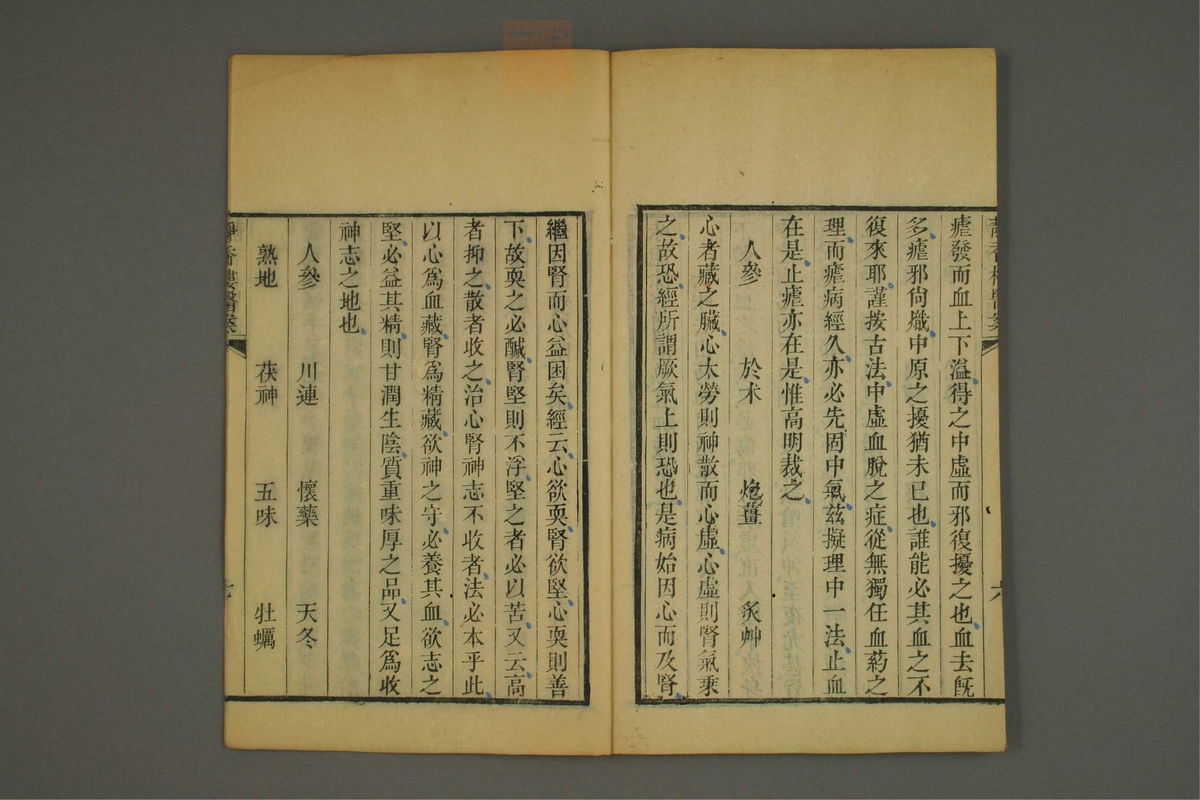 靜香樓醫案
六
瘧發而血上下溢得之中虛而邪復擾之也血去旣
多瘧邪尙熾中原之擾猶未已也誰能必其血之不
復來耶謹按古法中虛血脫之症從無獨任血葯之
理而瘧病經久亦必先固中氣兹擬理中一法止血
在是止瘧亦在是惟高明裁之
人參 於朮 炮薑 炙艸
心者藏之臟心太勞則神散而心虛心虛則腎氣乘
之故恐經所謂厥氣上則恐也是病始因心而及腎
繼因腎而心益困矣經云心欲耎腎欲堅心耎則善
下故耎之必醎腎堅則不浮堅之者必以苦又云高
者抑之散者收之治心腎神志不收者法必本乎此
以心爲血藏腎爲精藏欲神之守必養其血欲志之
堅必益其精則甘潤生陰質重味厚之品又足爲收
神志之地也
人參 川連 懷藥 天冬
熟地 茯神 五味 牡蠣
靜香樓醫案